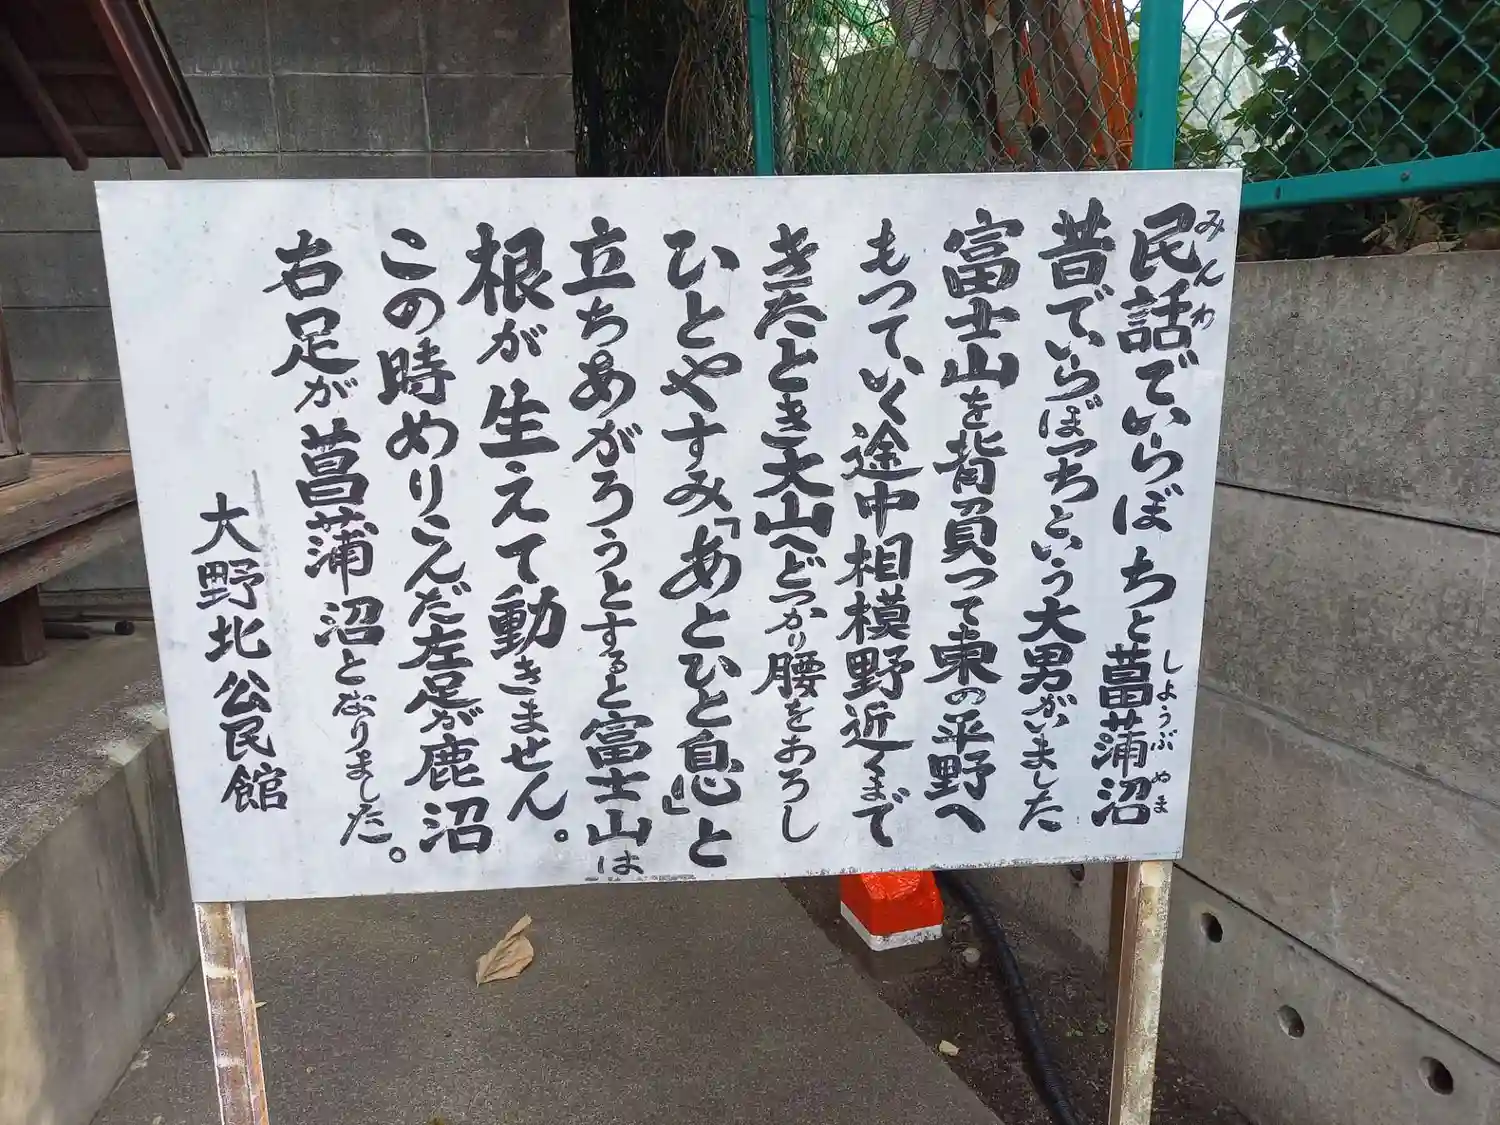 民話でいらぼっちと菖蒲沼
みんわ
しようぶ ぬま
昔でいらぼっちという大男がいました
富士山を背負って東の平野へ
もっていく途中相模野近くまで
きたとき大山へどっかり腰をおろし
ひとやすみ「あとひと息」と
立ちあがろうとすると富士山は
根が生えて動きません。
この時めりこんだ左足が鹿沼
右足が菖蒲沼となりました。
大野北公民館